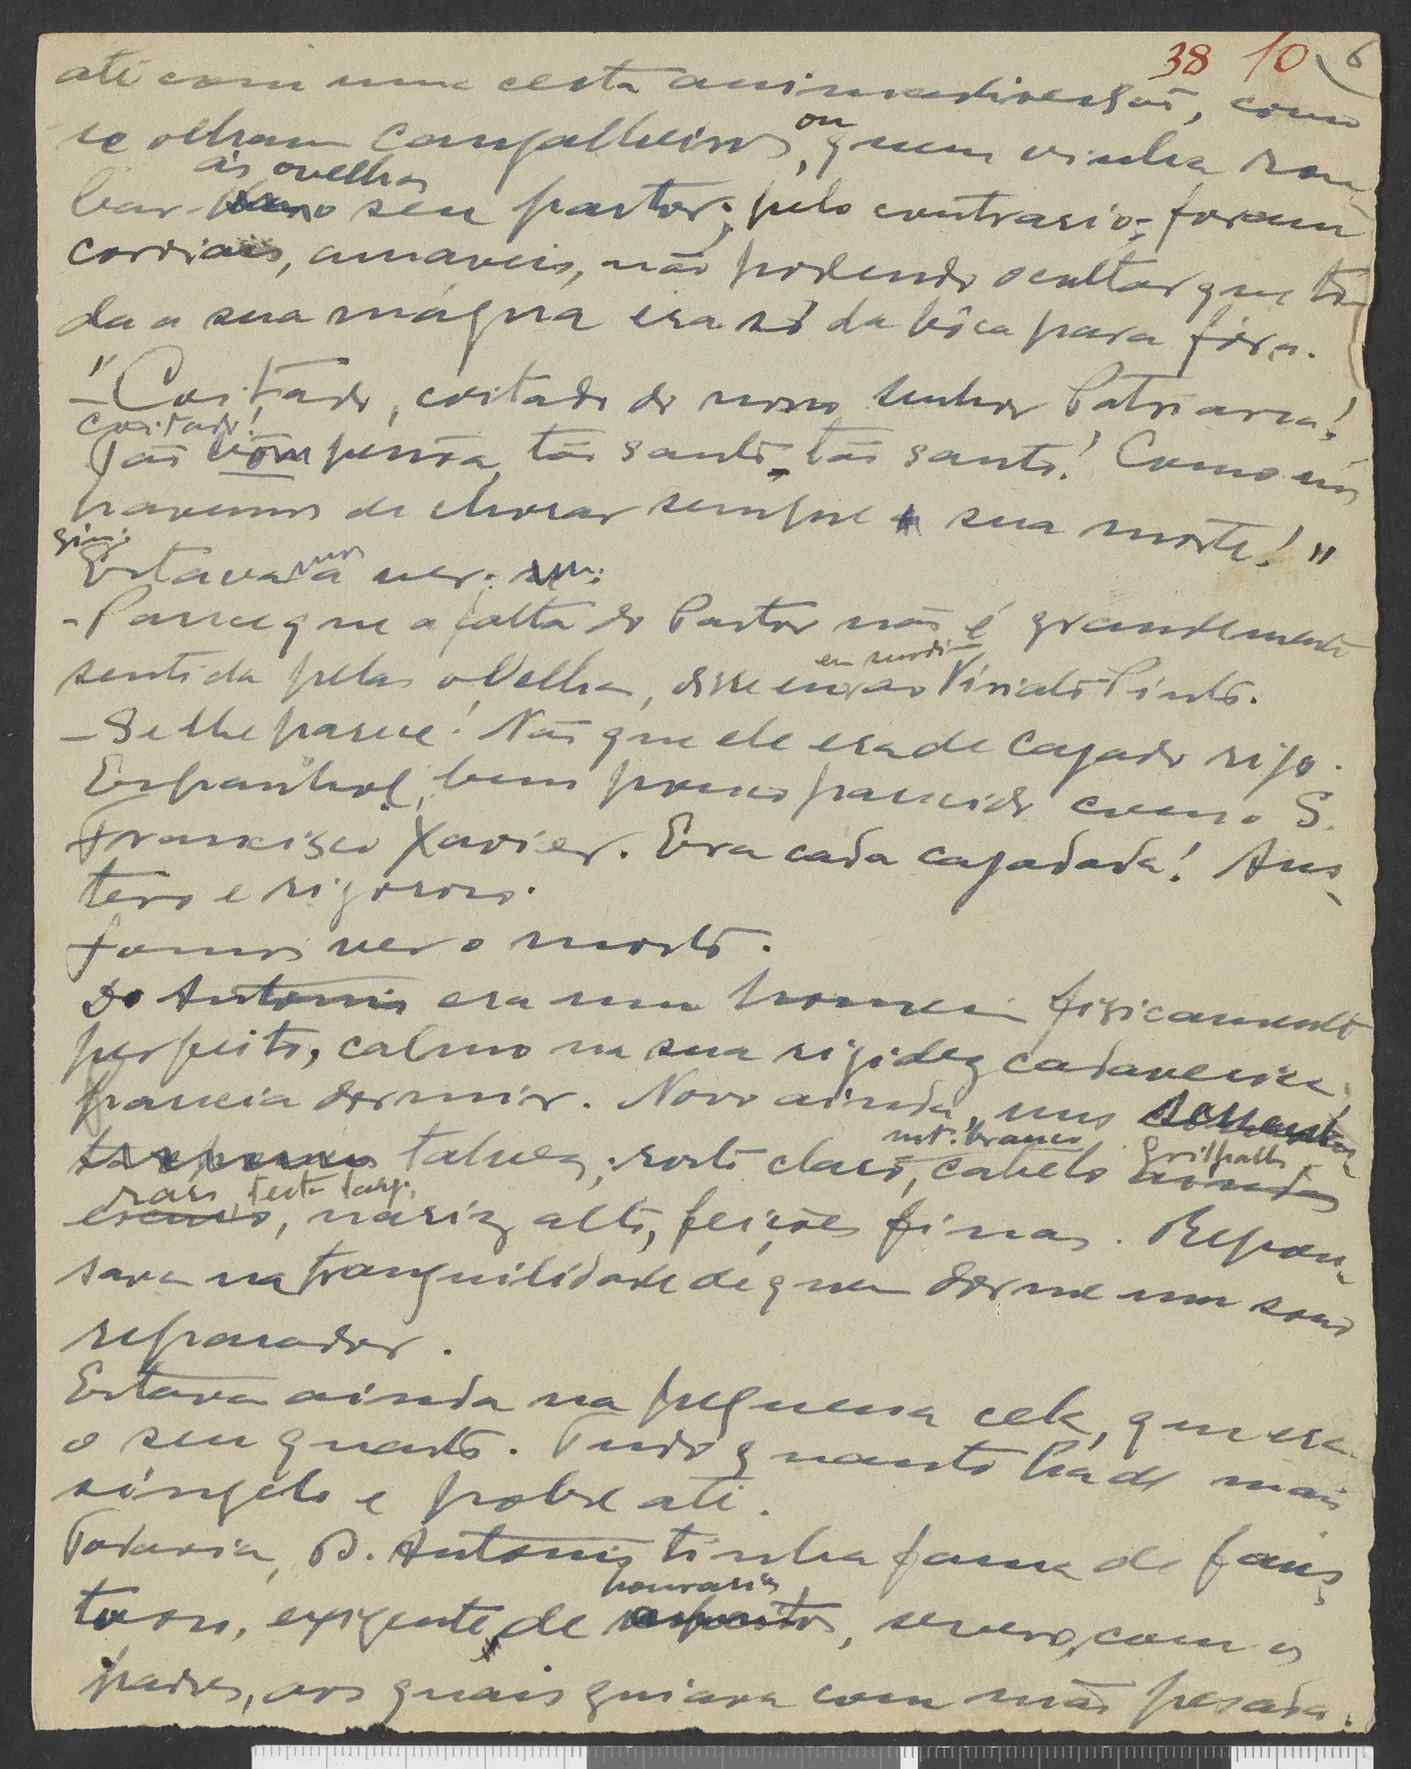 38 10 6
até com uma certa animadversão, como
se olham cangalheiros, ou quem vinha rou
bar às ovelhas o seu pastor; pelo contrario; foram
cordiais, amaveis, não podendo ocultar que to
da a sua mágua era só da bôca para fóra.
"
- Coitado, coitado do nosso senhor Patriarca!
Coitado!
Tão bom pessoa, tão santo, tão santo! Como nós
havemos de chorar sempre a sua morte! "
Estavam a ver:
- Parece que a falta do Pastor não é grandemente
sentida pelas ovelhas, disse eu em surdina ao Viriato Pinto.
- Se lhe parece! Não que ele era de cajado rijo.
Espanhol, bem pouco parecido com o S.
Francisco Xavier. Era cada cajadada! Aus-
tero e rigoroso.
Fomos ver o morto.
Do Antonio era um homem fisicamente
perfeito, calmo na sua rigidez cadaverica,
parecia dormir. Novo ainda, uns
talvez; rosto claro, mt. branco, cabelo grisalho
raro, testa larg. nariz alto, feições finas. Repou-
sava na tranquilidade de quem dorme um sono
reparador.
Estava ainda na pequena cela, que era
o seu quarto. Tudo quanto há de mais
singelo e pobre ali.
Todavia, D. Antonio tinha fama de faus
toso, exigente de honrarias, severo com os
padres, aos quais guiava com mão pesada.